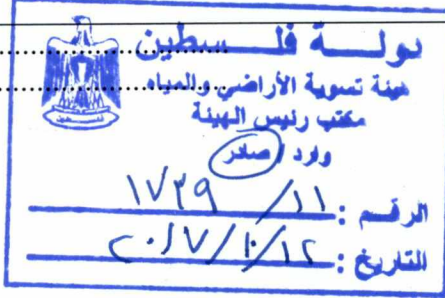 دولـــة فلـــسطين
هيئة تسوية الأراضي والمياه
مكتب رئيس الهيئة
وارد / صادر
الرقم : ١١/ ١٧٣٩
التاريخ : ٢٠١٧/١٠/١٢